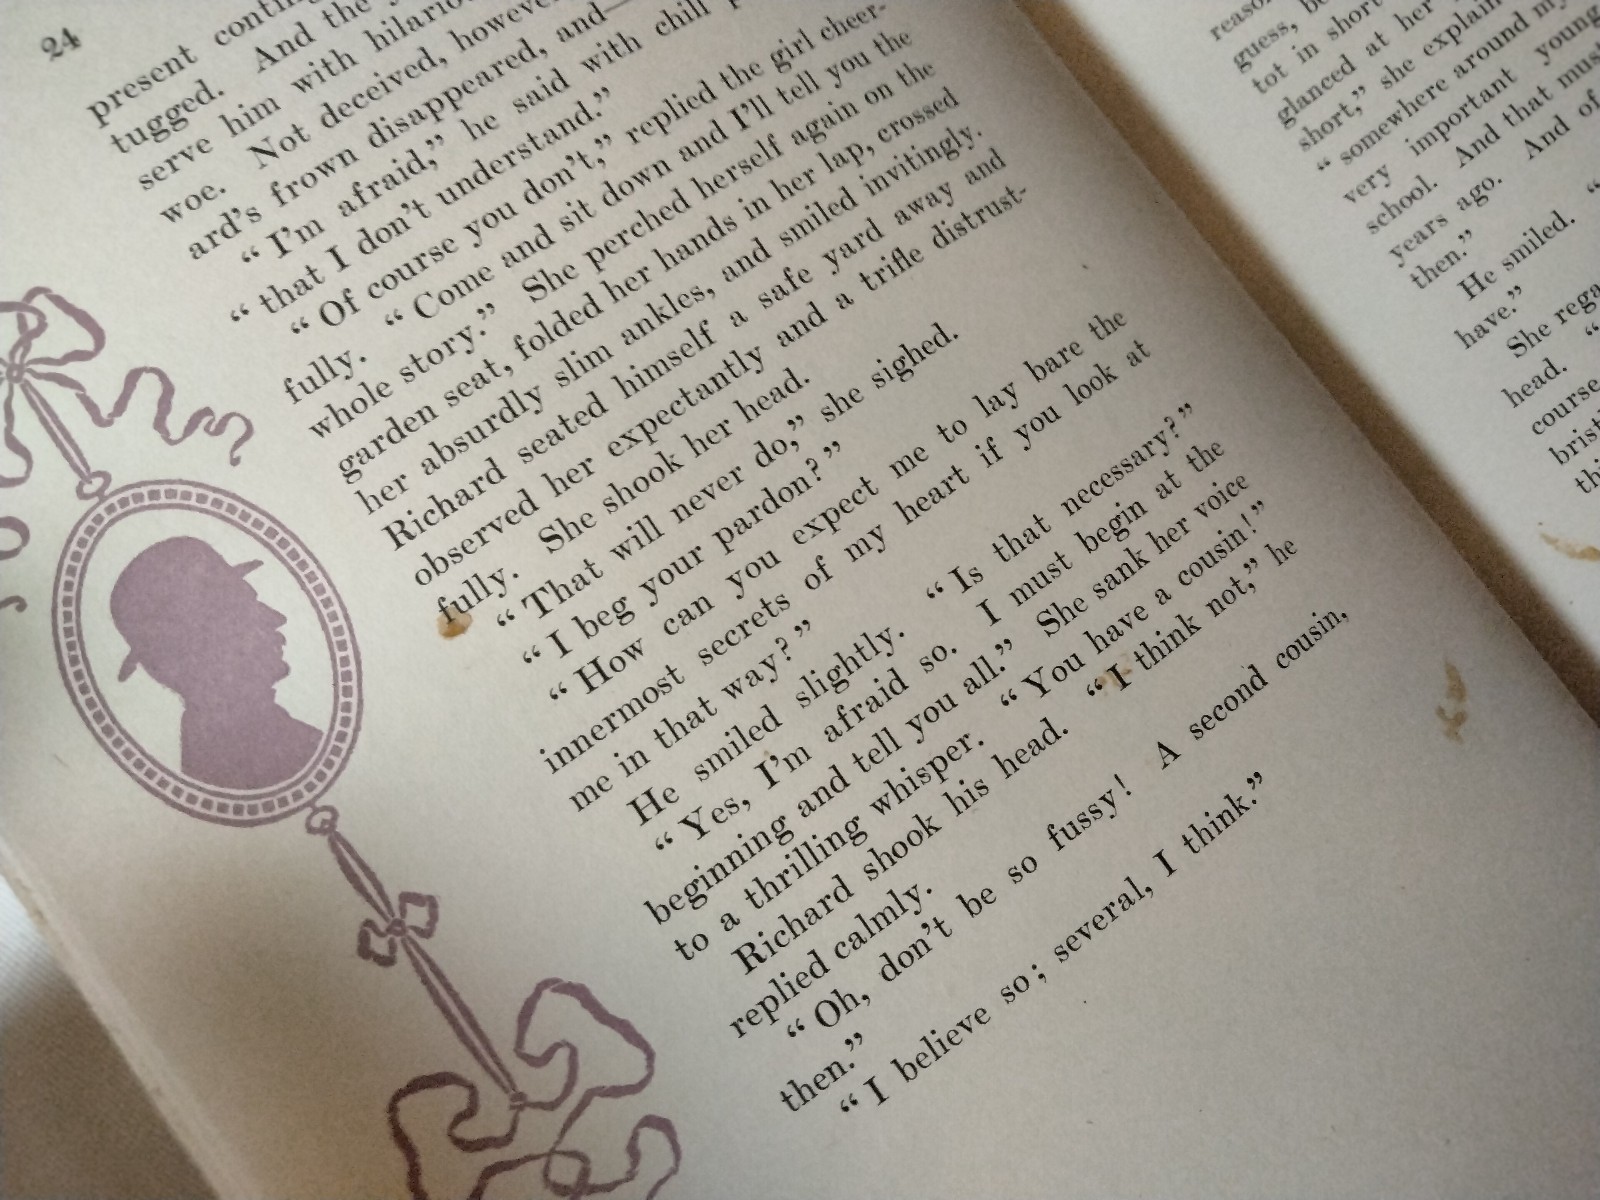 24
present
tugged. And the
serve him with
woe. Not deceived, however
ard's frown disappeared, and—
"I'm afraid," he said with chill
"that I don't understand."
"Of course you don't," replied the girl cheer-
fully. "Come and sit down and I'll tell you the
whole story." She perched herself again on the
garden seat, folded her hands in her lap, crossed
her absurdly slim ankles, and smiled invitingly.
Richard seated himself a safe yard away and
observed her expectantly and a trifle distrust-
fully. She shook her head.
"That will never do," she sighed.
"I beg your pardon?"
"How can you expect me to lay bare the
innermost secrets of my heart if you look at
me in that way?"
He smiled slightly. "Is that necessary?"
"Yes, I'm afraid so. I must begin at the
beginning and tell you all." She sank her voice
to a thrilling whisper. "You have a cousin!"
Richard shook his head. "I think not," he
replied calmly.
"Oh, don't be so fussy! A second cousin,
then."
"I believe so; several, I think."
guess,
tot in short
glanced at her
short," she
"somewhere around
very important young
school. And that must
years ago. And of
then."
He smiled. "
have."
She
head. "
course